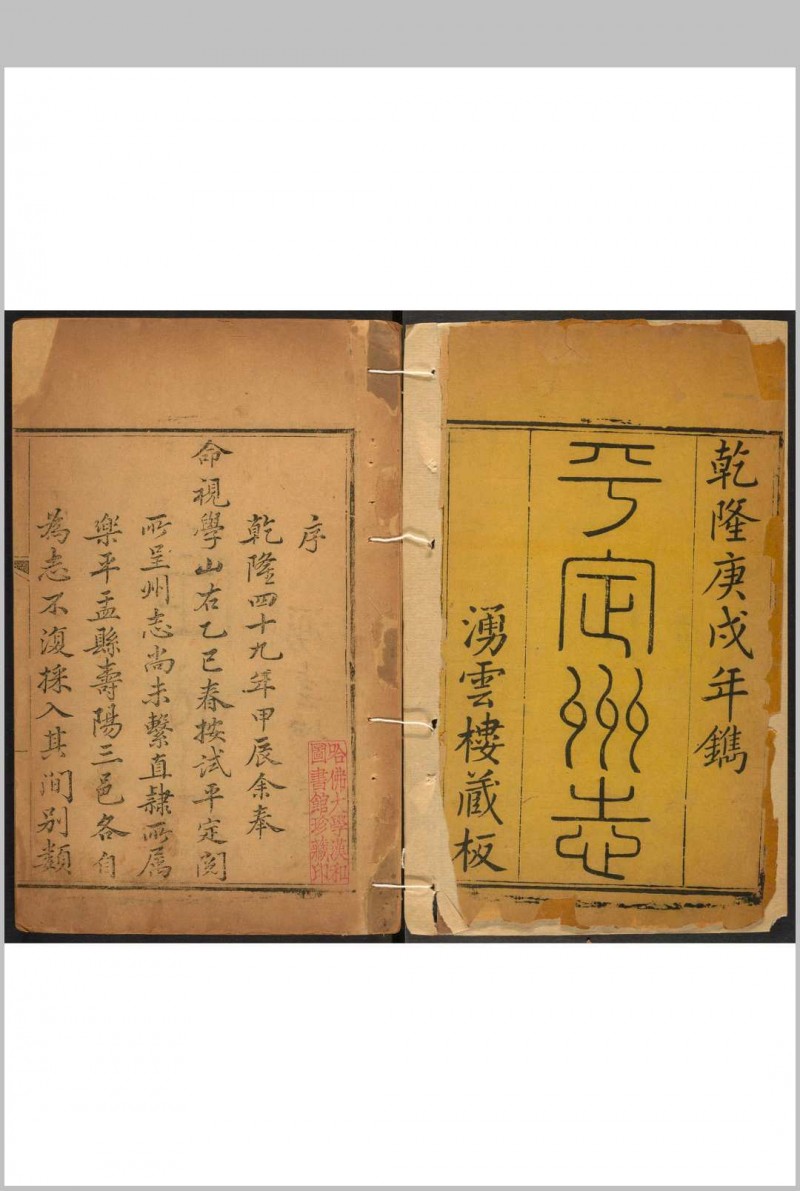 乾隆庚戌年鐫
平定州志
湧雲樓藏板
序
乾隆四十九年甲辰余奉
命視學山右乙巳春按試平定閱
所呈州志尚未繫直隸所屬
樂平盂縣壽陽三邑各自
為志不復採入其間别類
哈佛大學漢和
圖書館珍藏印